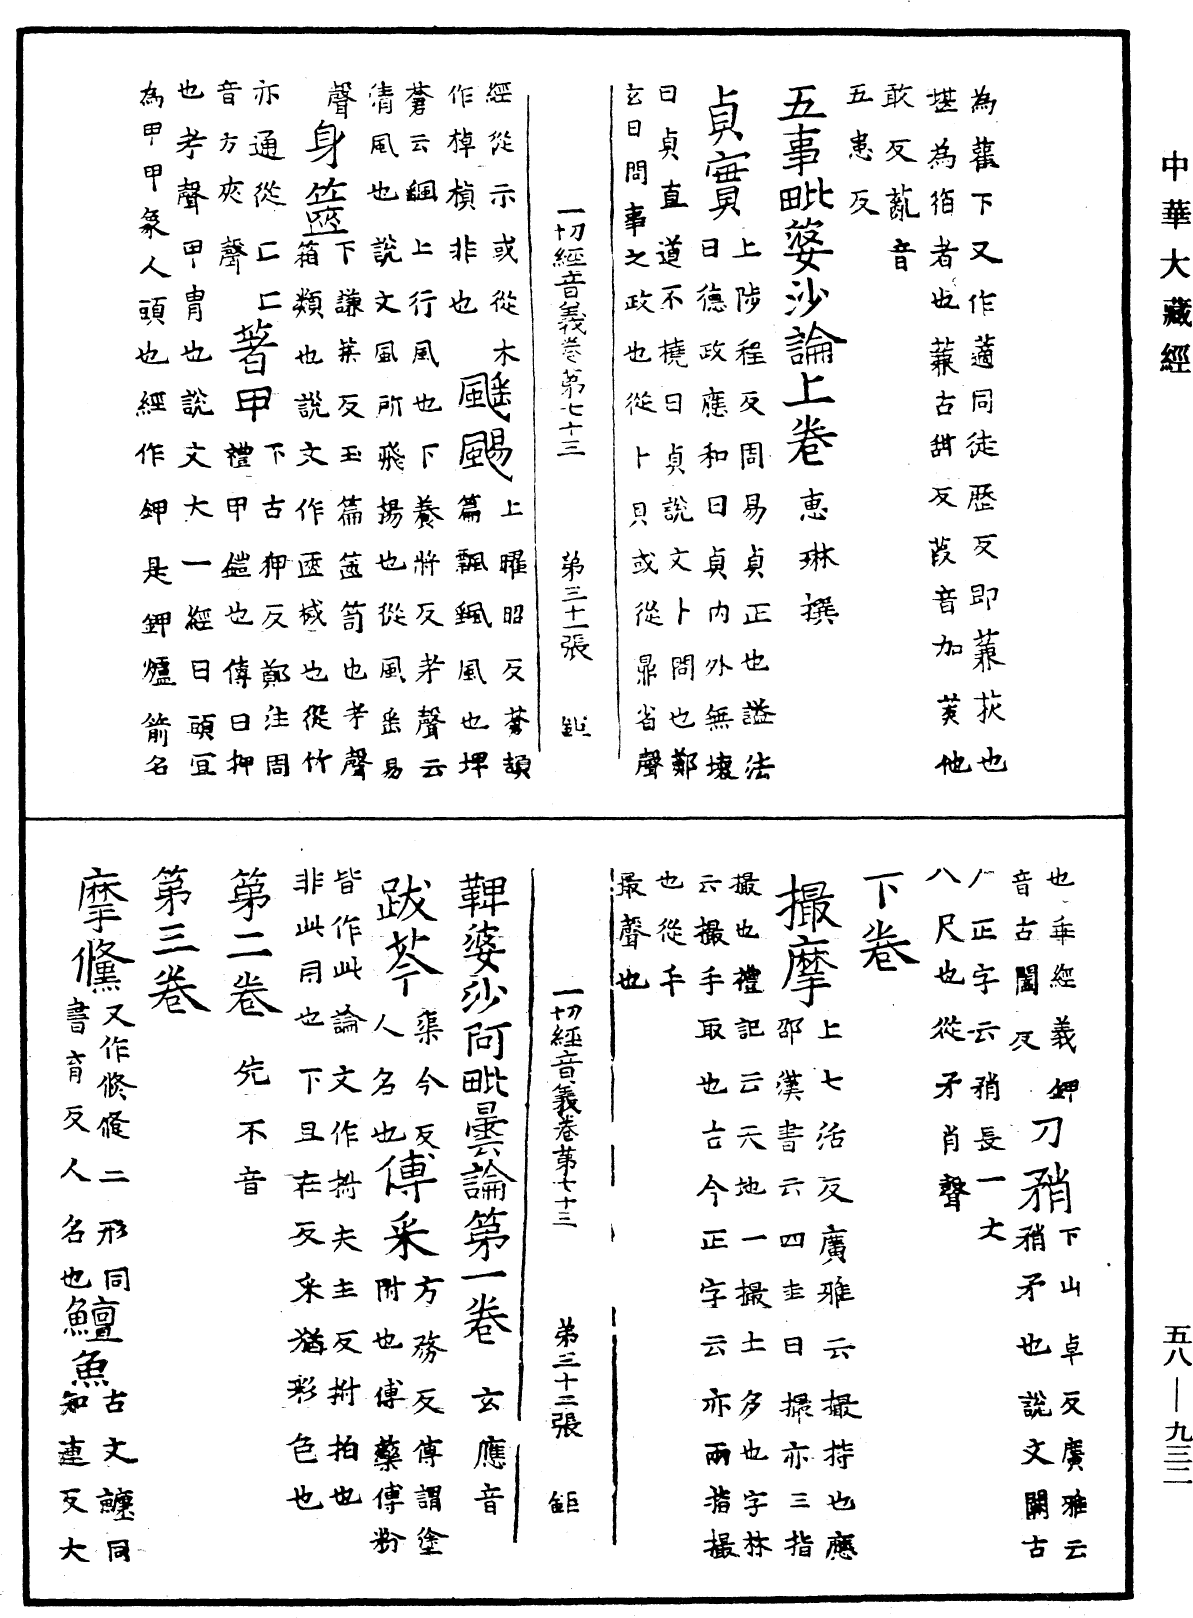 中華大藏經
為䕽下又作薖同徒歷反即蒹荻也
堪為箔者也蒹古甜反葭音加菼他
敢反䕅音
五患反
五事毗婆沙論上卷 惠琳撰
貞實 上陟程反周易貞正也謚法
曰德政應和曰貞內外無壞
曰貞直道不橈曰貞說文卜問也鄭
玄曰問事之政也從卜貝或從鼎省聲
一切經音義卷第七十三 第三十一張 鉅
經從示或從木
作棹楨非也 颻颺 上曜昭反蒼頡
篇飄颻風也埤
蒼云颻上行風也下養將反考聲云
清風也說文風所飛揚也從風昜
聲 身篋 下謙葉反玉篇篋笥也考聲
箱類也說文作匧椷也從竹
亦通從匚匚
音方夾聲 著甲 下古狎反鄭注周
禮甲鎧也傳曰押
也考聲甲冑也說文大一經曰頭宜
為甲甲象人頭也經作鉀是鉀爐箭名
也乖經義鉀
音古闔反 刀矟 下山卓反廣雅云
矟矛也說文闕古
今正字云矟長一丈
八尺也從矛肖聲
下卷
撮摩 上七活反廣雅云撮持也應
邵漢書云四圭曰撮亦三指
撮也禮記云天地一撮土多也字林
云撮手取也古今正字云亦兩指撮
也從手
最聲也
一切經音義卷第七十三 第三十二張 鉅
鞞婆沙阿毗曇論第一卷 玄應音
跋芩 渠今反
人名也 傅采 方務反傅謂塗
附也傅藥傅粉
皆作此論文作拊夫主反拊拍也
非此用也下且在反采猶彩色也
第二卷 先不音
第三卷
摩儵 又作倏倐二形同
書育反人名也 鱣魚 古文鱣同
知連反大
五八—九三二